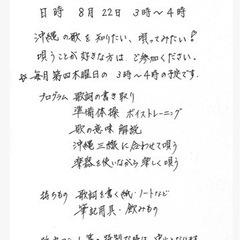 日時 8月22日 3時〜4時
沖縄の歌を知りたい、唄ってみたい!
唄うことが好きな方は、ご参加ください。
※毎月第四木曜日の 3時〜4時の予定です。
プログラム 歌詞の書き取り
準備体操 ボイストレーニング
歌の意味 解説
沖縄三線に合わせて唄う
楽器を使いながら楽しく唄う
持ちもの 歌詞を書く紙・ノートなど
筆記用具・飲みもの